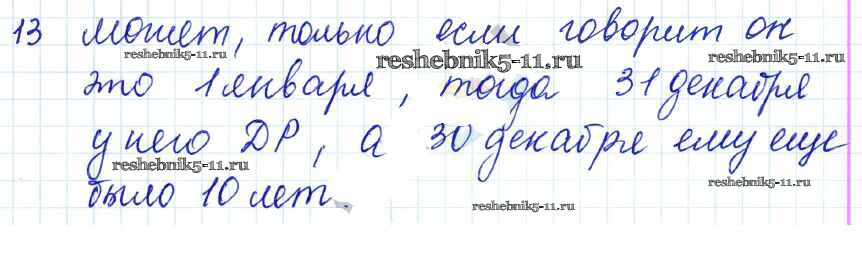 13 может, только если говорит он
reshebnik5-11.ru
reshebnik5-11.ru
reshebnik5-11.ru
это 1 января, тогда 31 декабря
у него ДР, а 30 декабря ему еще
reshebnik5-11.ru
reshebnik5-11.ru
было 10 лет.
reshebnik5-11.ru